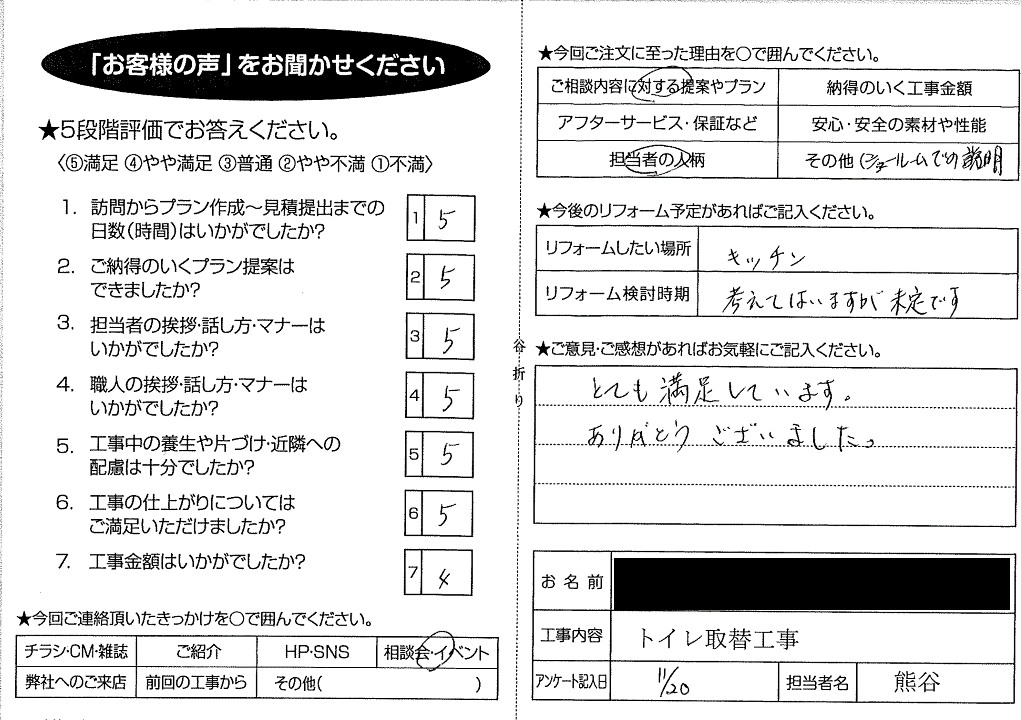 「お客様の声」をお聞かせください
★5段階評価でお答えください。
〈⑤満足 ④やや満足 ③普通 ②やや不満 ①不満〉
1. 訪問からプラン作成〜見積提出までの
日数(時間)はいかがでしたか?
1 5
2. ご納得のいくプラン提案は
できましたか?
2 5
3. 担当者の挨拶・話し方・マナーは
いかがでしたか?
3 5
4. 職人の挨拶・話し方・マナーは
いかがでしたか?
4 5
5. 工事中の養生や片づけ・近隣への
配慮は十分でしたか?
5 5
6. 工事の仕上がりについては
ご満足いただけましたか?
6 5
7. 工事金額はいかがでしたか?
7 4
★今回ご連絡頂いたきっかけを〇で囲んでください。
チラシ・CM・雑誌 ご紹介 HP・SNS 相談会・イベント
弊社へのご来店 前回の工事から その他( )
谷折り
★今回ご注文に至った理由を〇で囲んでください。
ご相談内容に対する提案やプラン 納得のいく工事金額
アフターサービス・保証など 安心・安全の素材や性能
担当者の人柄 その他(ショールームでの説明
★今後のリフォーム予定があればご記入ください。
リフォームしたい場所 キッチン
リフォーム検討時期 考えてはいますが未定です
★ご意見・ご感想があればお気軽にご記入ください。
とても満足しています。
ありがとうございました。
お名前
工事内容 トイレ取替工事
アンケート記入日 11/20 担当者名 熊谷